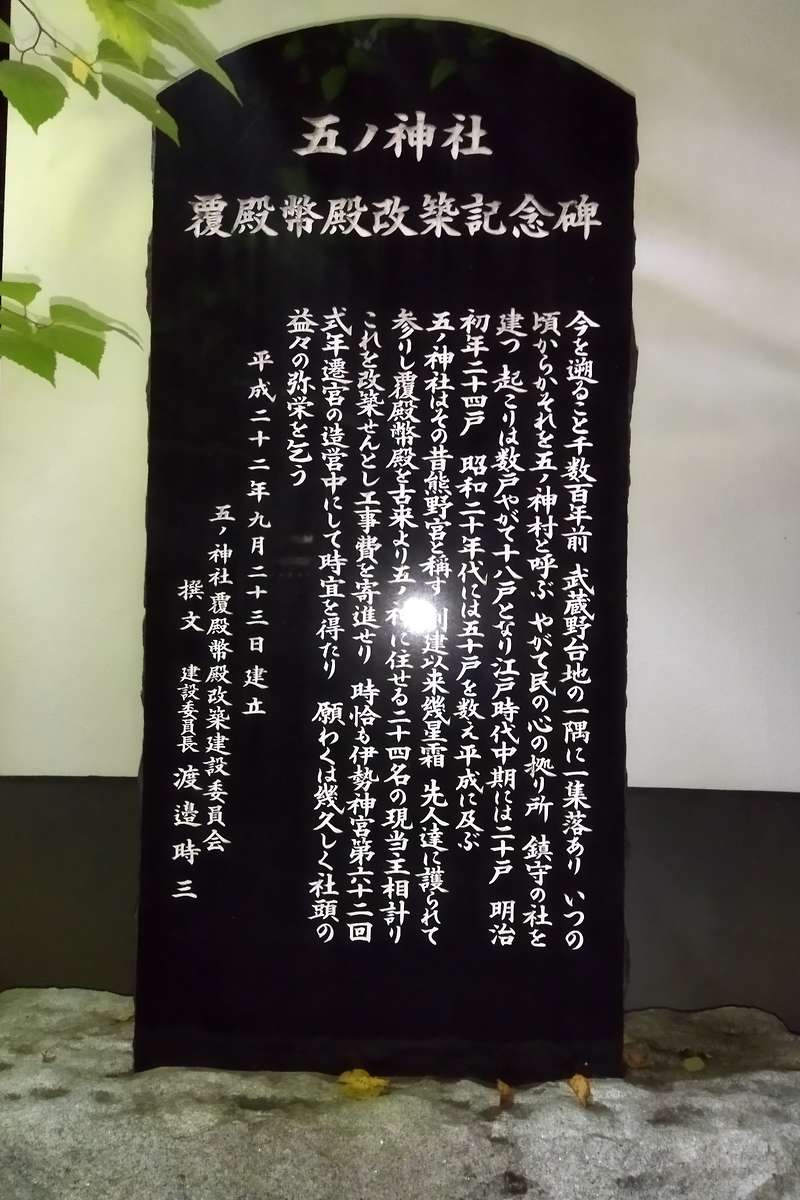 五ノ神社
覆殿幣殿改築記念碑
今を遡ること千数百年前 武蔵野台地の一隅に一集落あり いつの
頃からかそれを五ノ神村と呼ぶ やがて民の心の拠り所 鎮守の社を
建つ 起こりは数戸やがて十八戸となり江戸時代中期には二十戸 明治
初年二十四戸 昭和二十年代には五十戸を数え平成に及ぶ
五ノ神社はその昔熊野宮と稱す 創建以来幾星霜 先人達に護られて
参りし覆殿幣殿を古来より五ノ神に住せる二十四名の現当主相計り
これを改築せんとし工事費を寄進せり 時恰も伊勢神宮第六十二回
式年遷宮の造営中にして時宜を得たり 願わくは幾久しく社頭の
益々の弥栄を乞う
平成二十二年九月二十三日建立
五ノ神社覆殿幣殿改築建設委員会
撰文 建設委員長 渡邉時三